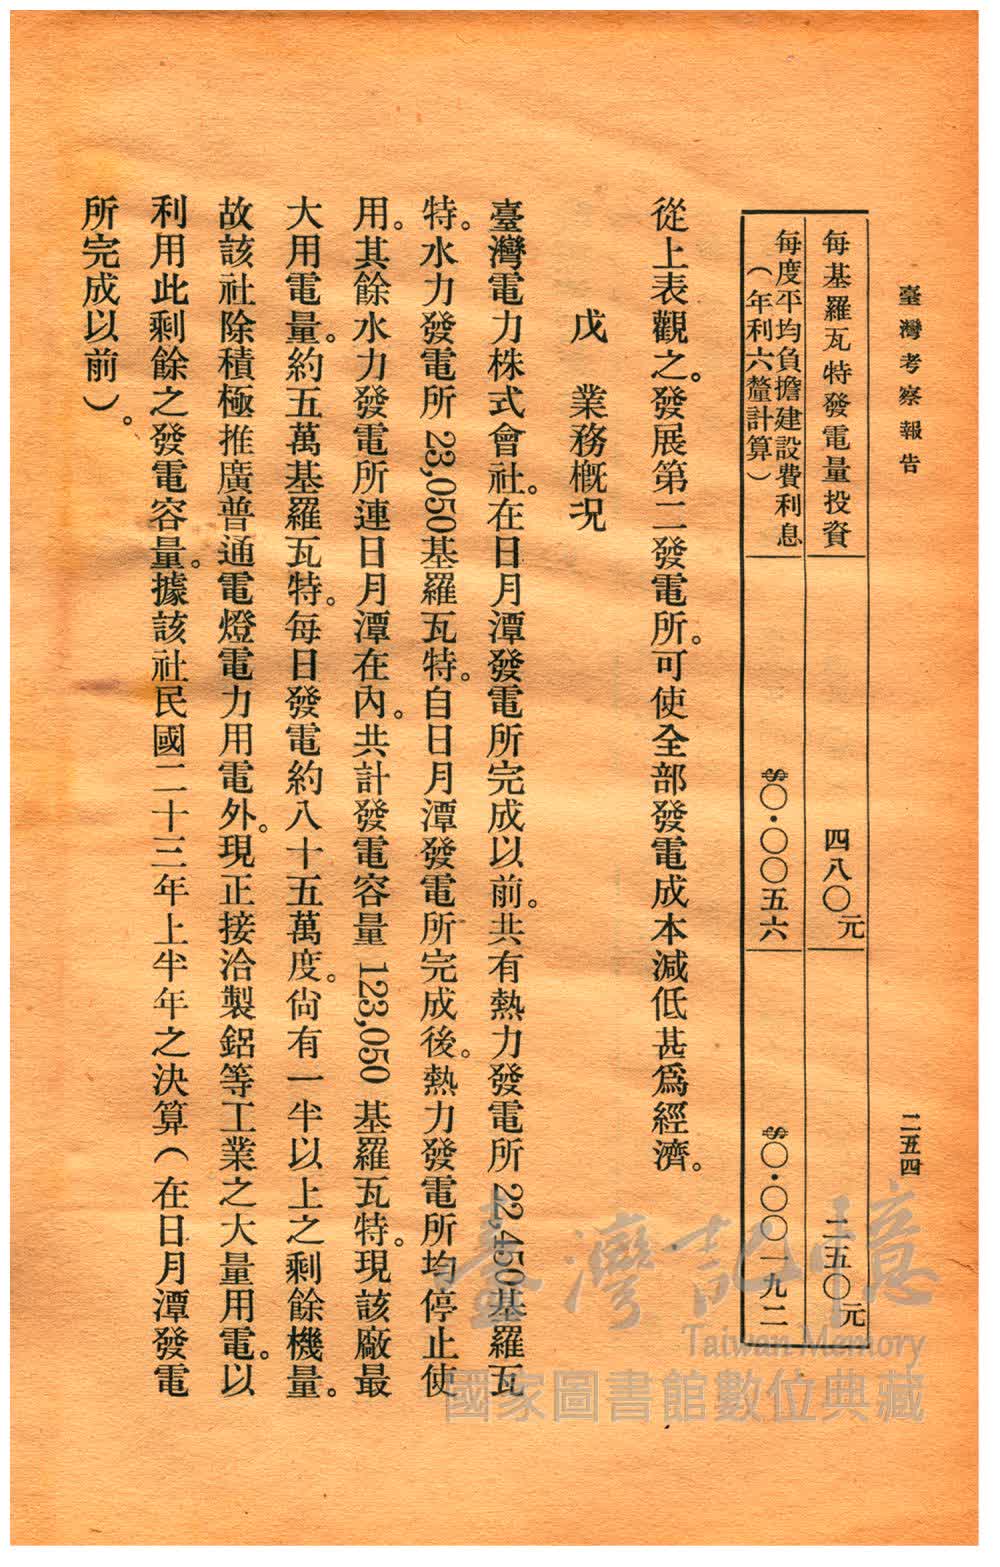 臺灣考察報告
二五四
每基羅瓦特發電量投資 四八〇元 二五〇元
每度平均負擔建設費利息 $〇·〇〇五六 $〇·〇〇一九二
(年利六釐計算)
從上表觀之。發展第二發電所。可使全部發電成本減低甚爲經濟。
戊 業務槪況
臺灣電力株式會社。在日月潭發電所完成以前。共有熱力發電所22,450基羅瓦
特。水力發電所23,050基羅瓦特。自日月潭發電所完成後。熱力發電所均停止使
用。其餘水力發電所連日月潭在內。共計發電容量123,050基羅瓦特。現該廠最
大用電量。約五萬基羅瓦特。每日發電約八十五萬度。尙有一半以上之剩餘機量。
故該社除積極推廣普通電燈電力用電外。現正接洽製鋁等工業之大量用電。以
利用此剩餘之發電容量。據該社民國二十三年上半年之決算(在日月潭發電
所完成以前)。
臺灣記憶
Taiwan Memory
國家圖書館數位典藏